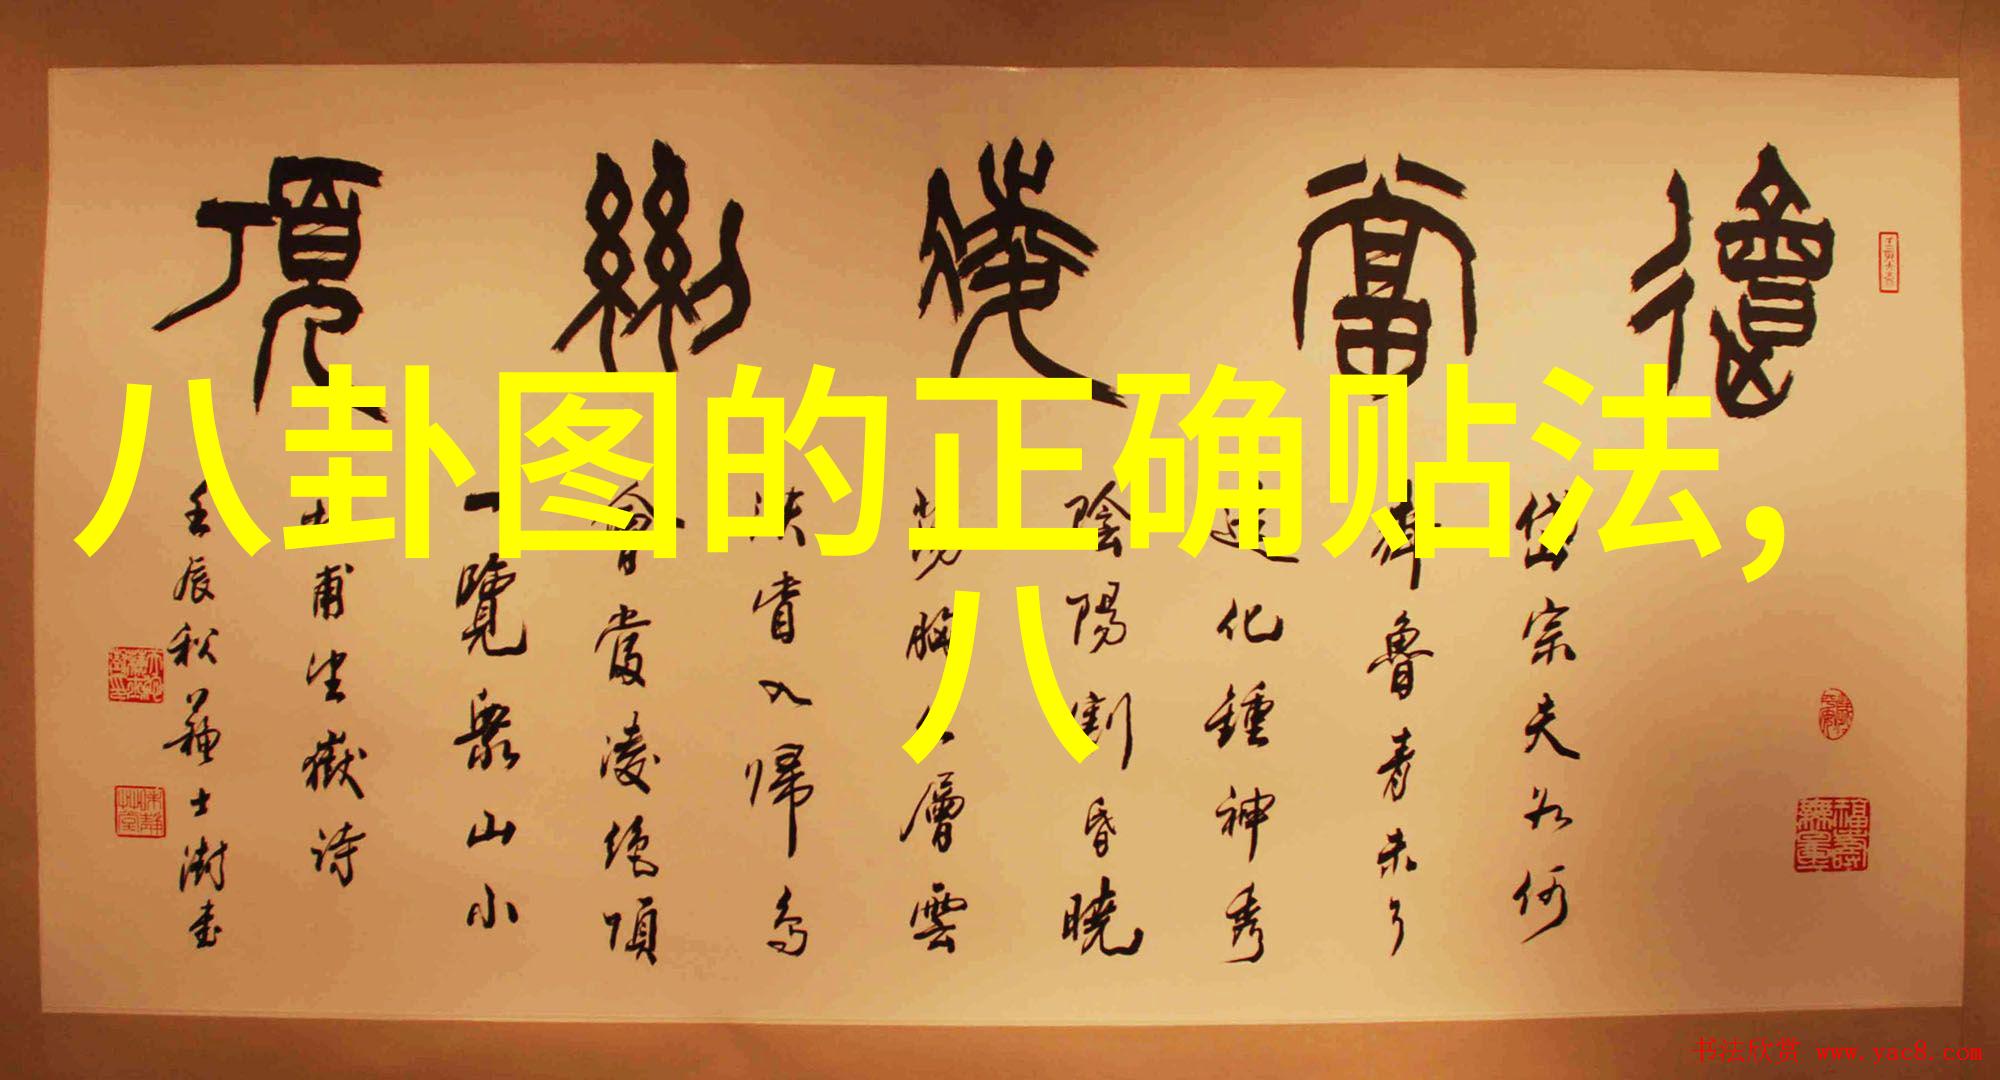 會當凌絕頂
八卦图的正确贴法,
八
岱宗夫如何
齊魯青未了
造化鍾神秀
陰陽割昏曉
蕩胸生層雲
決眥入歸鳥
會當凌絕頂
一覽眾山小
杜甫望嶽詩
壬辰秋蘇士澍書
福壽無量
书法欣赏 www.yac8.com